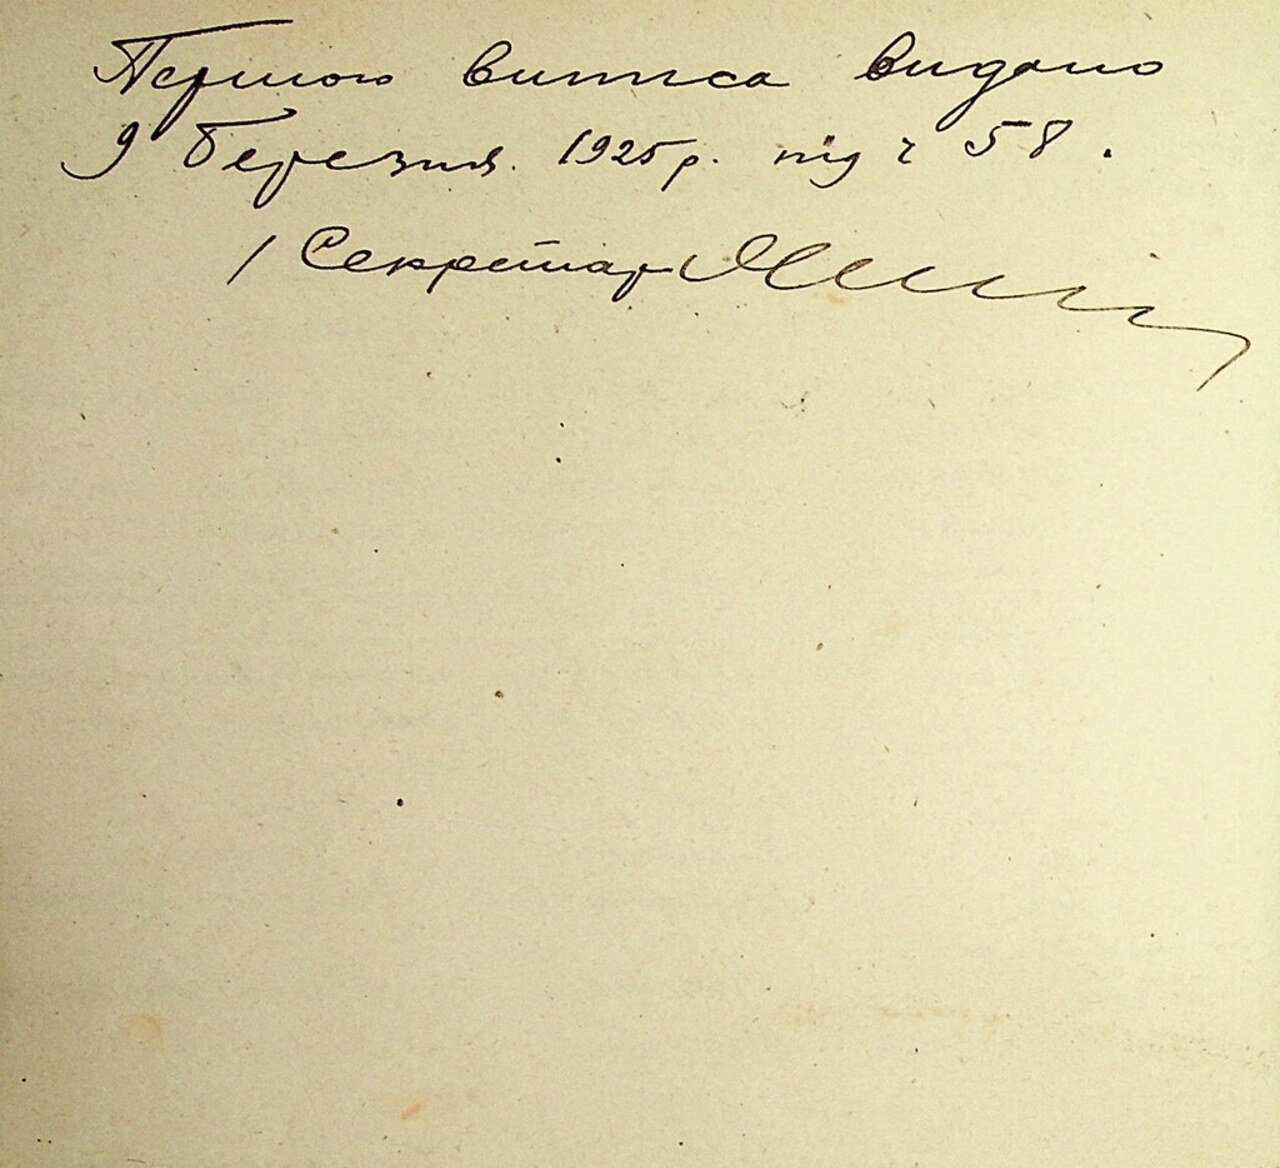 Першого витиса видано
9 березня. 1925 р. під ч 58.
/ Секретар